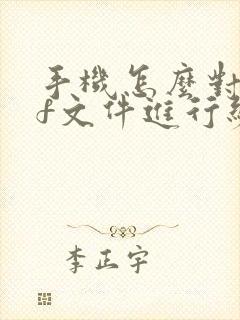 手機怎麼對
f文件進行
李正宇